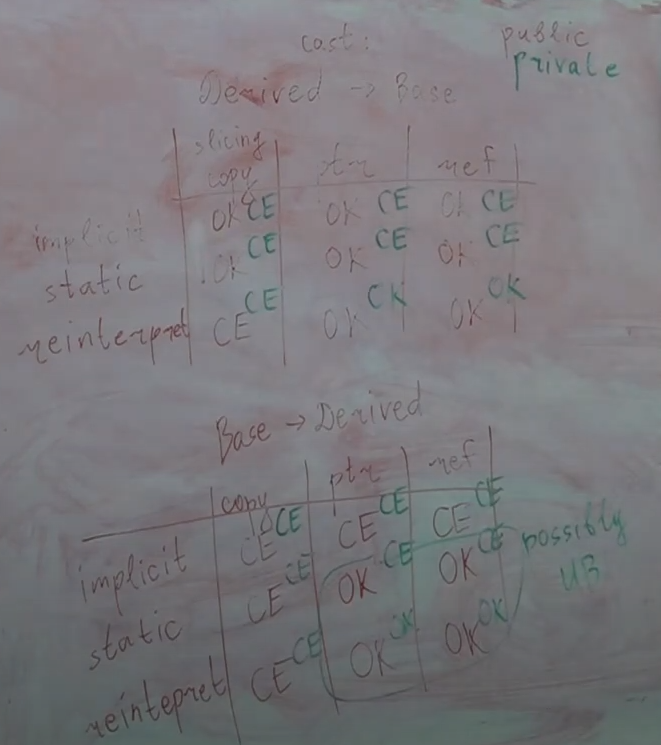 cast: public
private
Derived → Base
slicing copy ptr ref
implicit OK CE OK CE OK CE
static OK CE OK CE OK CE
reinterpret CE CE OK OK OK OK
Base → Derived
copy ptr ref
implicit CE CE CE CE CE CE
static CE CE OK CE OK CE possibly
UB
reintepret CE CE OK OK OK OK